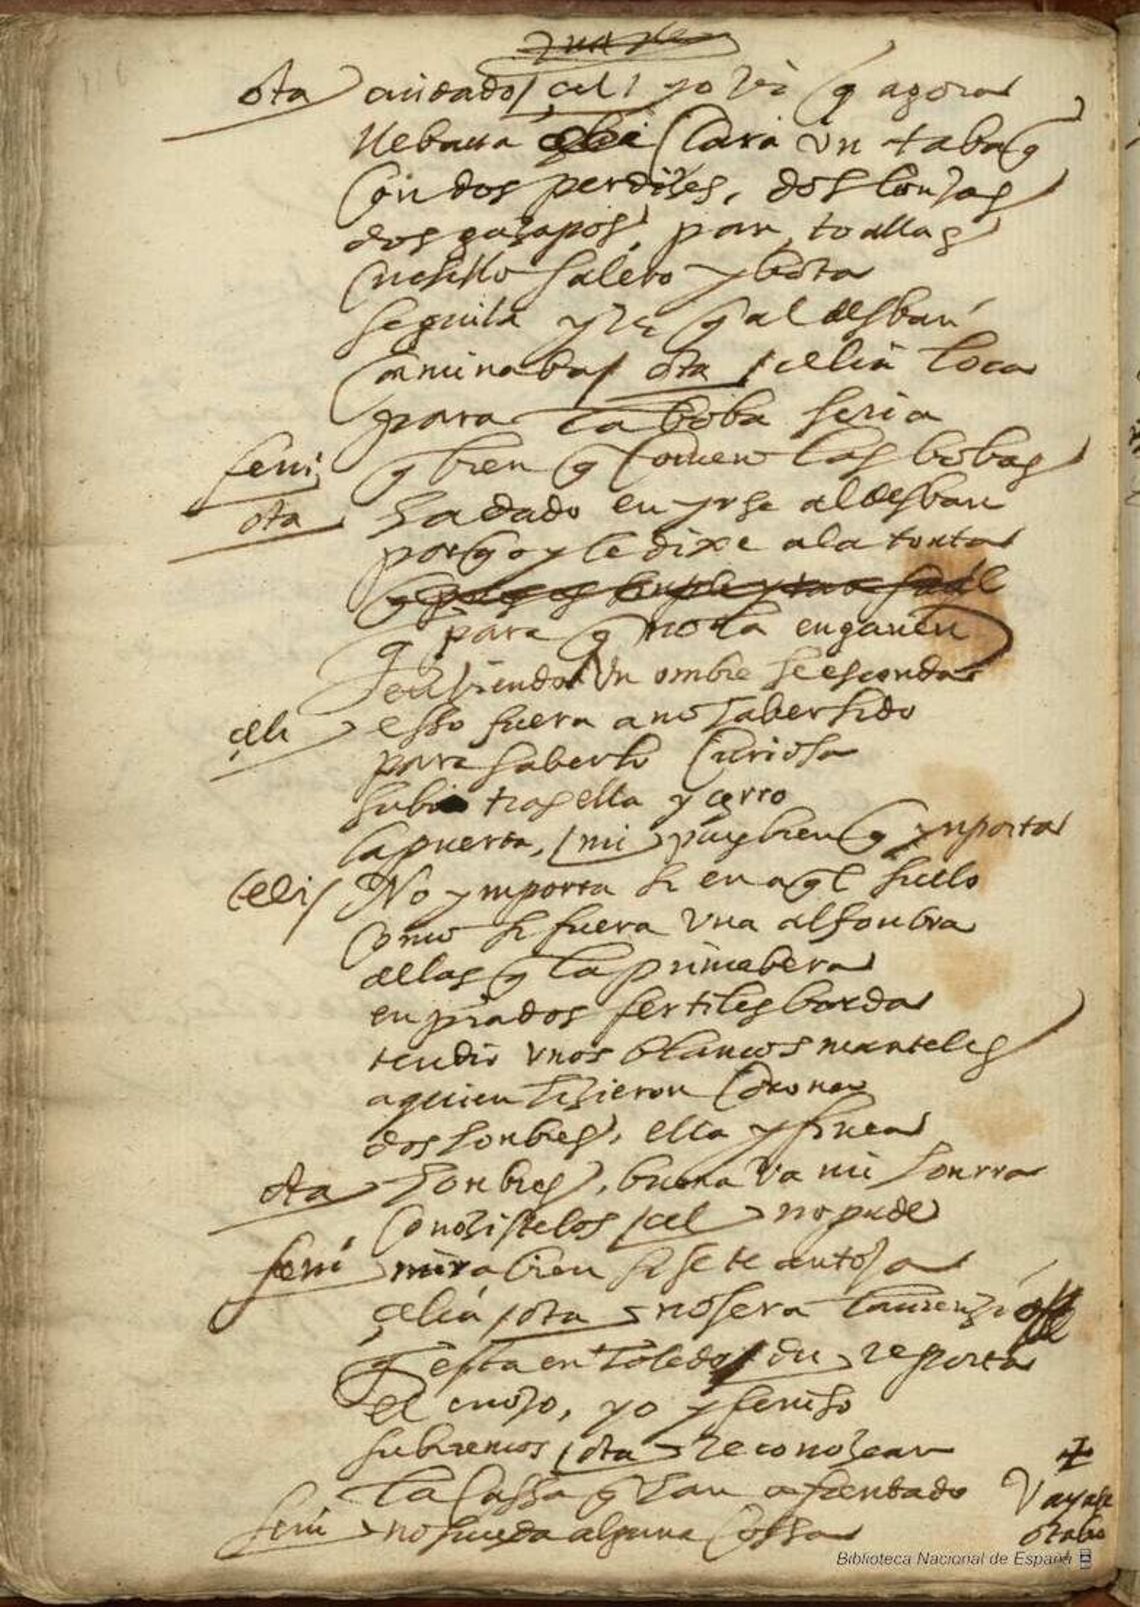 ota cuidado / celi yo vi q agora
llebaua clara un tabaq
con dos perdiçes, dos lonjas
dos gazapos, pan, toallas
cuchillo salero y bota
seguila y vi q al desban
caminaba / ota / celia loca
para la boba seria
feni q bien q comen las bobas
ota ha dado en yrse al desban
porq oy le dixe a la tonta
q para q no la engañen
en biendo un ombre se esconda
celi esso fuera a no haber sido
para saberlo curiosa
subi tras ella y çerro
la puerta, / mi / pues bien q ynporta
celi / No ymporta si en aql suelo
como si fuera una alfonbra
de las q la primabera
en prados fertiles borda
tendio unos blancos manteles
a quien hizieron corona
dos honbres, ella y finea
ota honbres, buena va mi honrra
conozistelos / cel no pude
feni mira bien si se te antoja
çelia / ota no sera laurenzio
q esta en toledo / du reporta
el enojo, yo y feniso
subiremos / ota reconozcan
la cassa q han afrentado
feni no suzeda alguna cossa
Vayase
otabo
Biblioteca Nacional de España